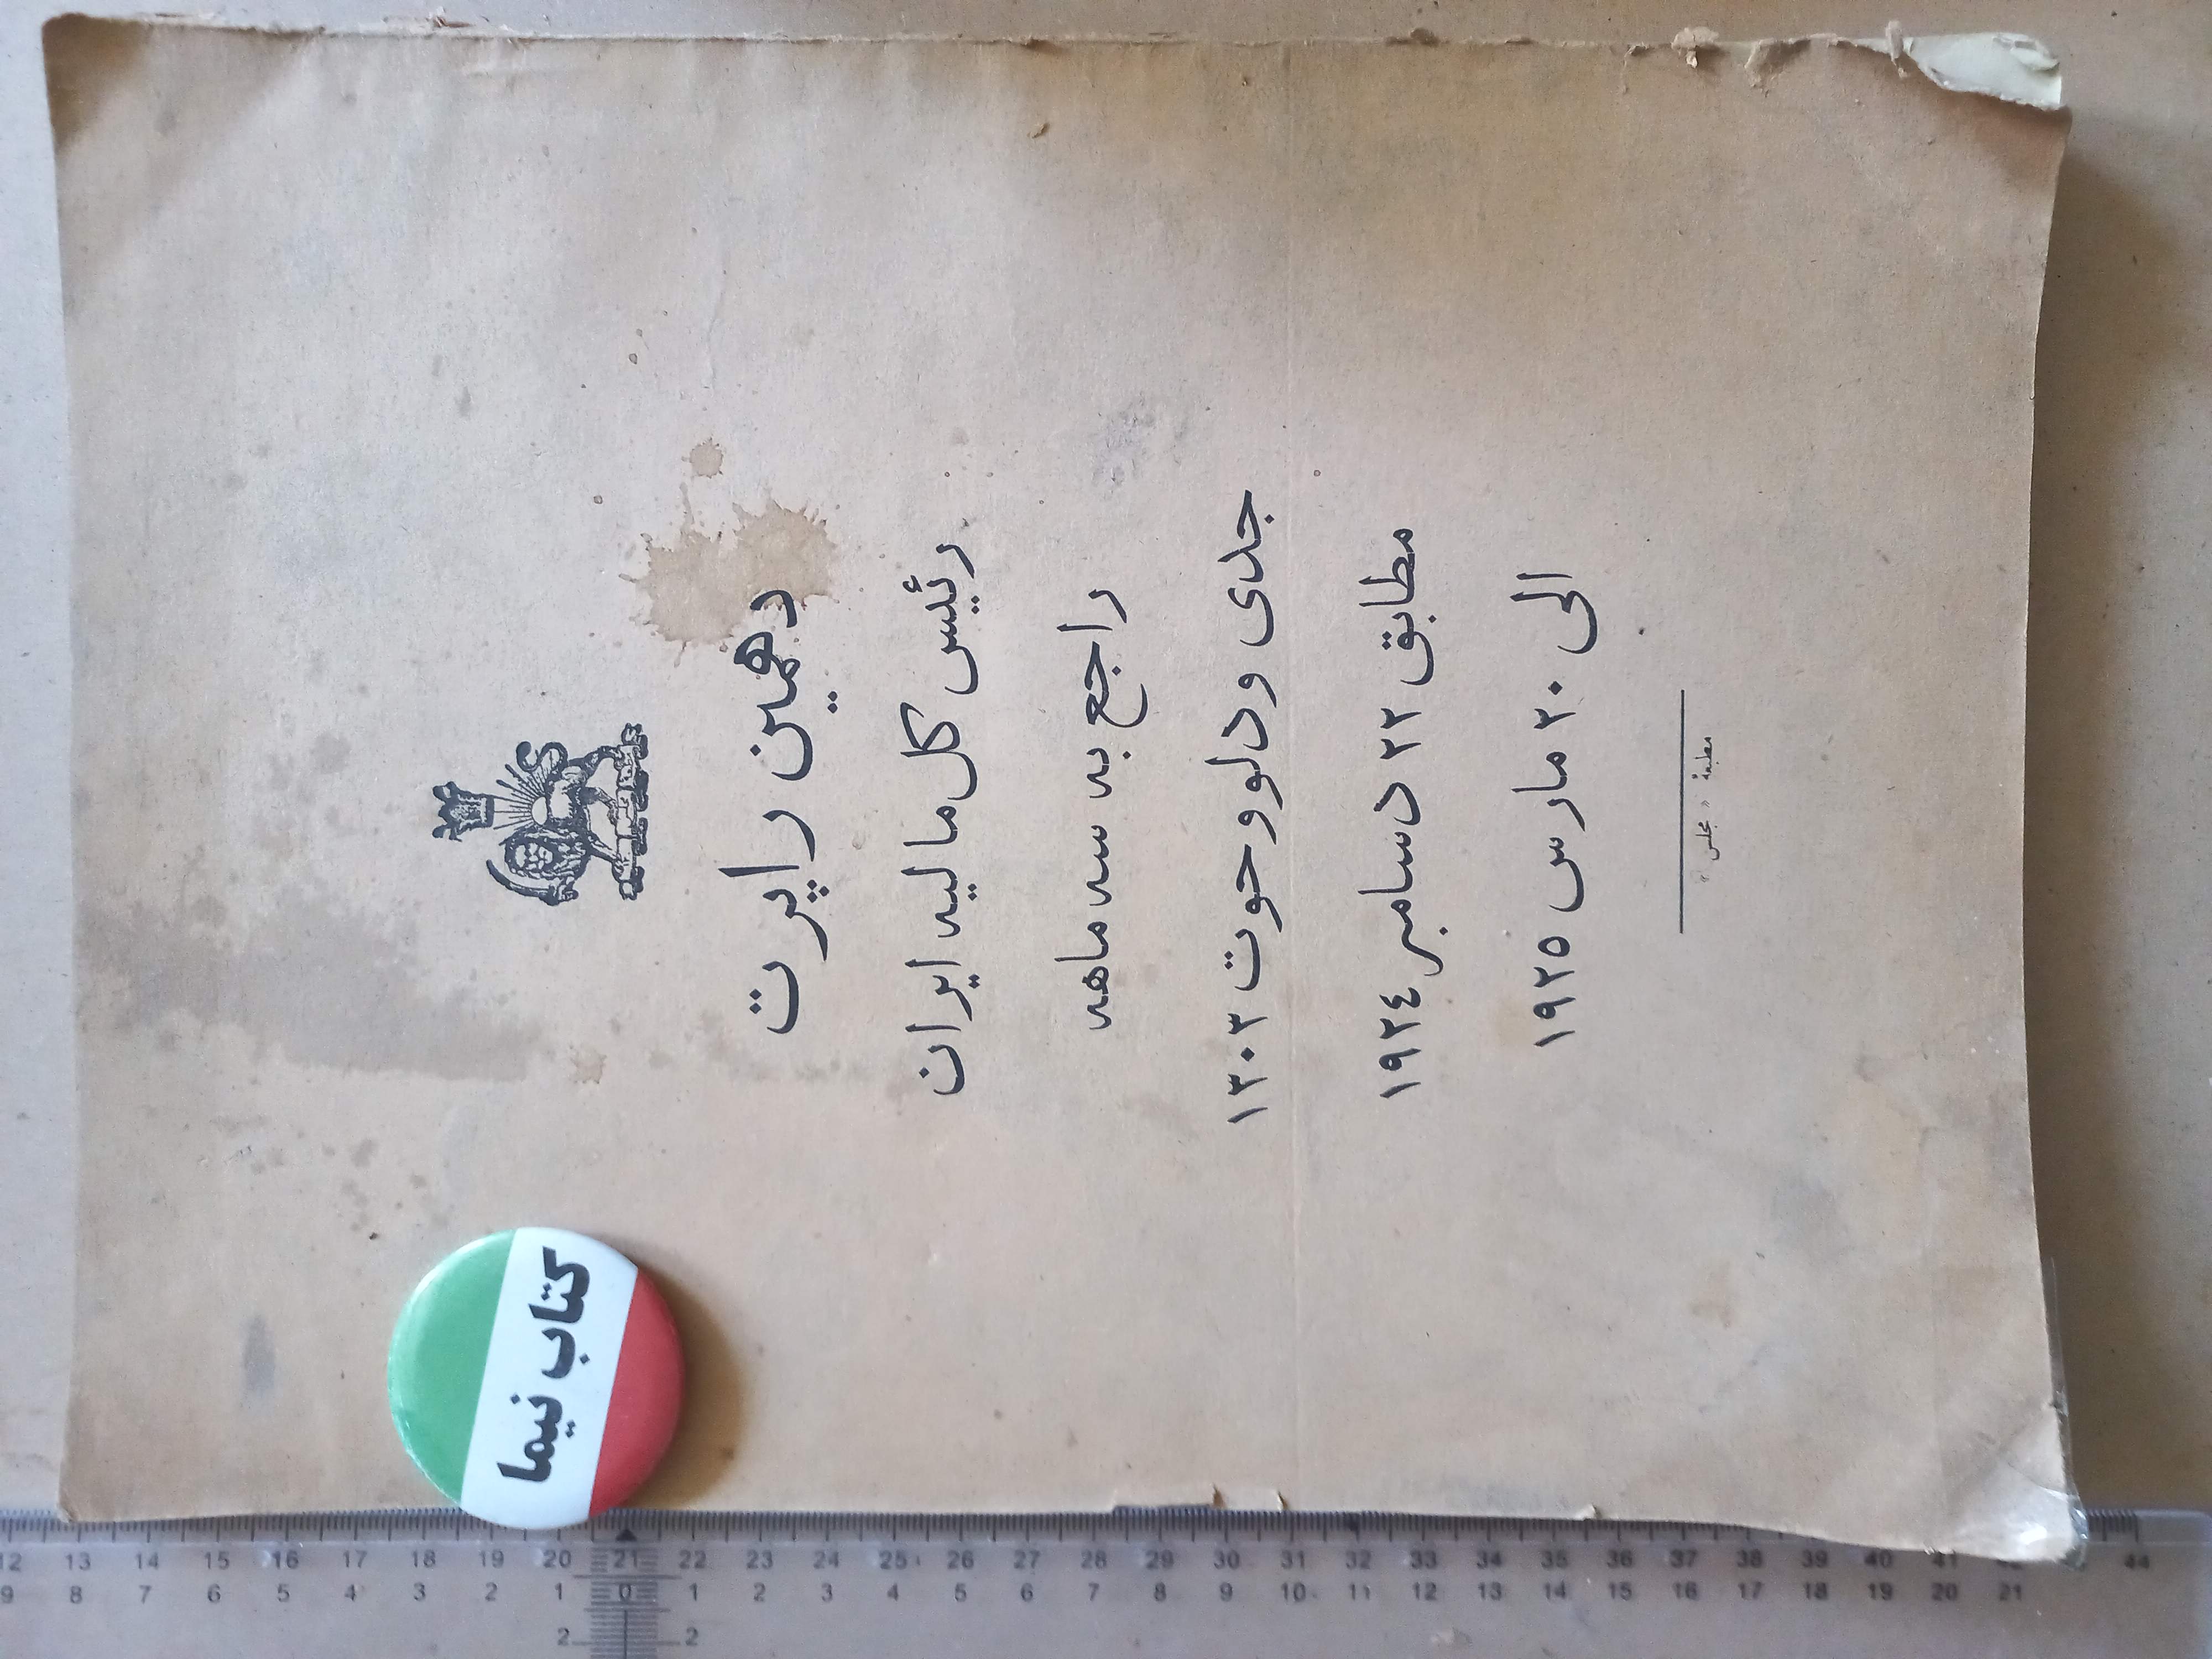 دهمین راپرت
رئیس کل مالیه ایران
راجع به سه ماهه
جدی ودلووحوت ۱۳۰۳
مطابق ۲۲ دسامبر ۱۹۲٤
الی ۲۰ مارس ۱۹۲۵
مطبعهٔ « مجلس »
کتاب نیما
12 13 14 15 16 17 18 19 20 21 22 23 24 25 26 27 28 29 30 31 32 33 34 35 36 37 38 39 40 41 44
9 8 7 6 5 4 3 2 1 0 1 2 3 4 5 6 7 8 9 10 11 12 13 14 15 16 17 18 19 20 21
2 2